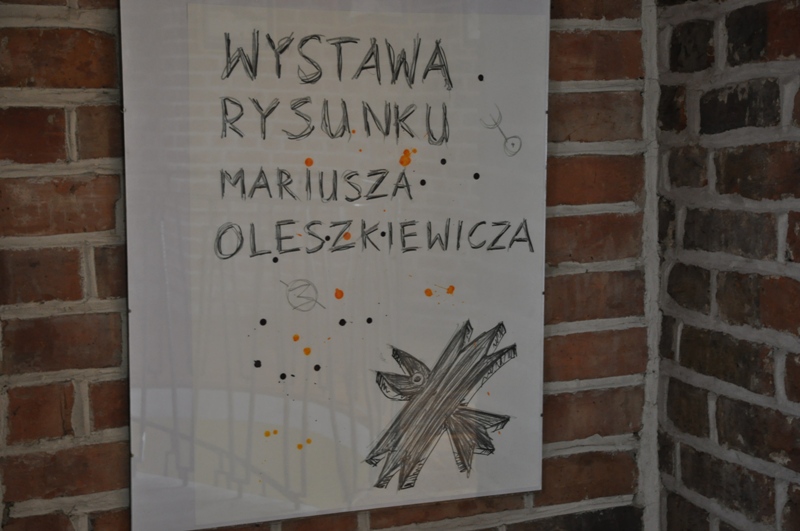 WYSTAWA
RYSUNKU
MARIUSZA
OLESZKIEWICZA